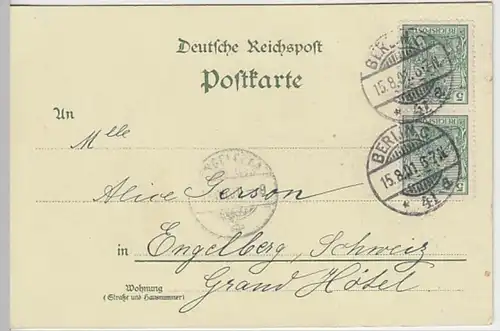 Deutsche Reichspost
Postkarte
An
Mlle
Alice Gerson
in Engelberg, Schweiz
Grand Hôtel.
Wohnung
(Straße und Hausnummer)
BERLIN, C.
15.8.01. 6-7N.
* 41 a
BERLIN, C.
15.8.01. 6-7N.
* 41 a
REICHSPOST
5
REICHSPOST
5